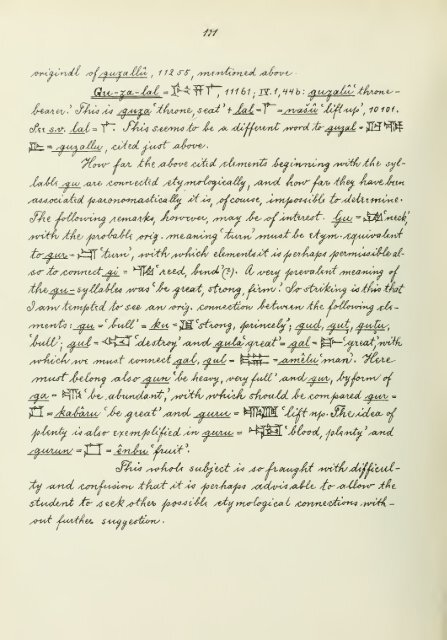 171
original of guzallû, 11255, mentioned above.
Gu-za-lal = 𒄖𒍝𒇲, 11161; IV. 1, 44b: guzalû 'throne-
bearer.' This is guza 'throne, seat' + lal = 𒇲 = našû 'lift up,' 10101.
See s.v. lal = 𒇲. This seems to be a different word to guzal =
= guzallu, cited just above.
How far the above cited elements beginning with the syl-
lable gu are connected etymologically, and how far they have been
associated paronomastically it is, of course, impossible to determine.
The following remarks, however, may be of interest. Gu = 'neck'
with the probable orig. meaning 'turn' must be etym. equivalent
to gur = 'turn', with which elements it is perhaps permissible al-
so to connect gi = 'reed, bend' (?). A very prevalent meaning of
the gu-syllables was 'be great, strong, firm.' So striking is this that
I am tempted to see an orig. connection between the following ele-
ments: gu = 'bull' = ku = 'strong, princely'; gud, gut, guti,
'bull'; gul = 'destroy' and gula 'great' = gal = 'great', with
which we must connect gal, gul = = amêlu 'man'. Here
must belong also gun 'be heavy, very full' and gur, by form of
ga = 'be abundant,' with which should be compared gur =
= kabâru 'be great' and guru = 'lift up.' The idea of
plenty is also exemplified in guru = 'blood, plenty' and
gurun = = ênbu 'fruit'.
This whole subject is so fraught with difficul-
ty and confusion that it is perhaps advisable to allow the
student to seek other possible etymological connections with-
out further suggestion.